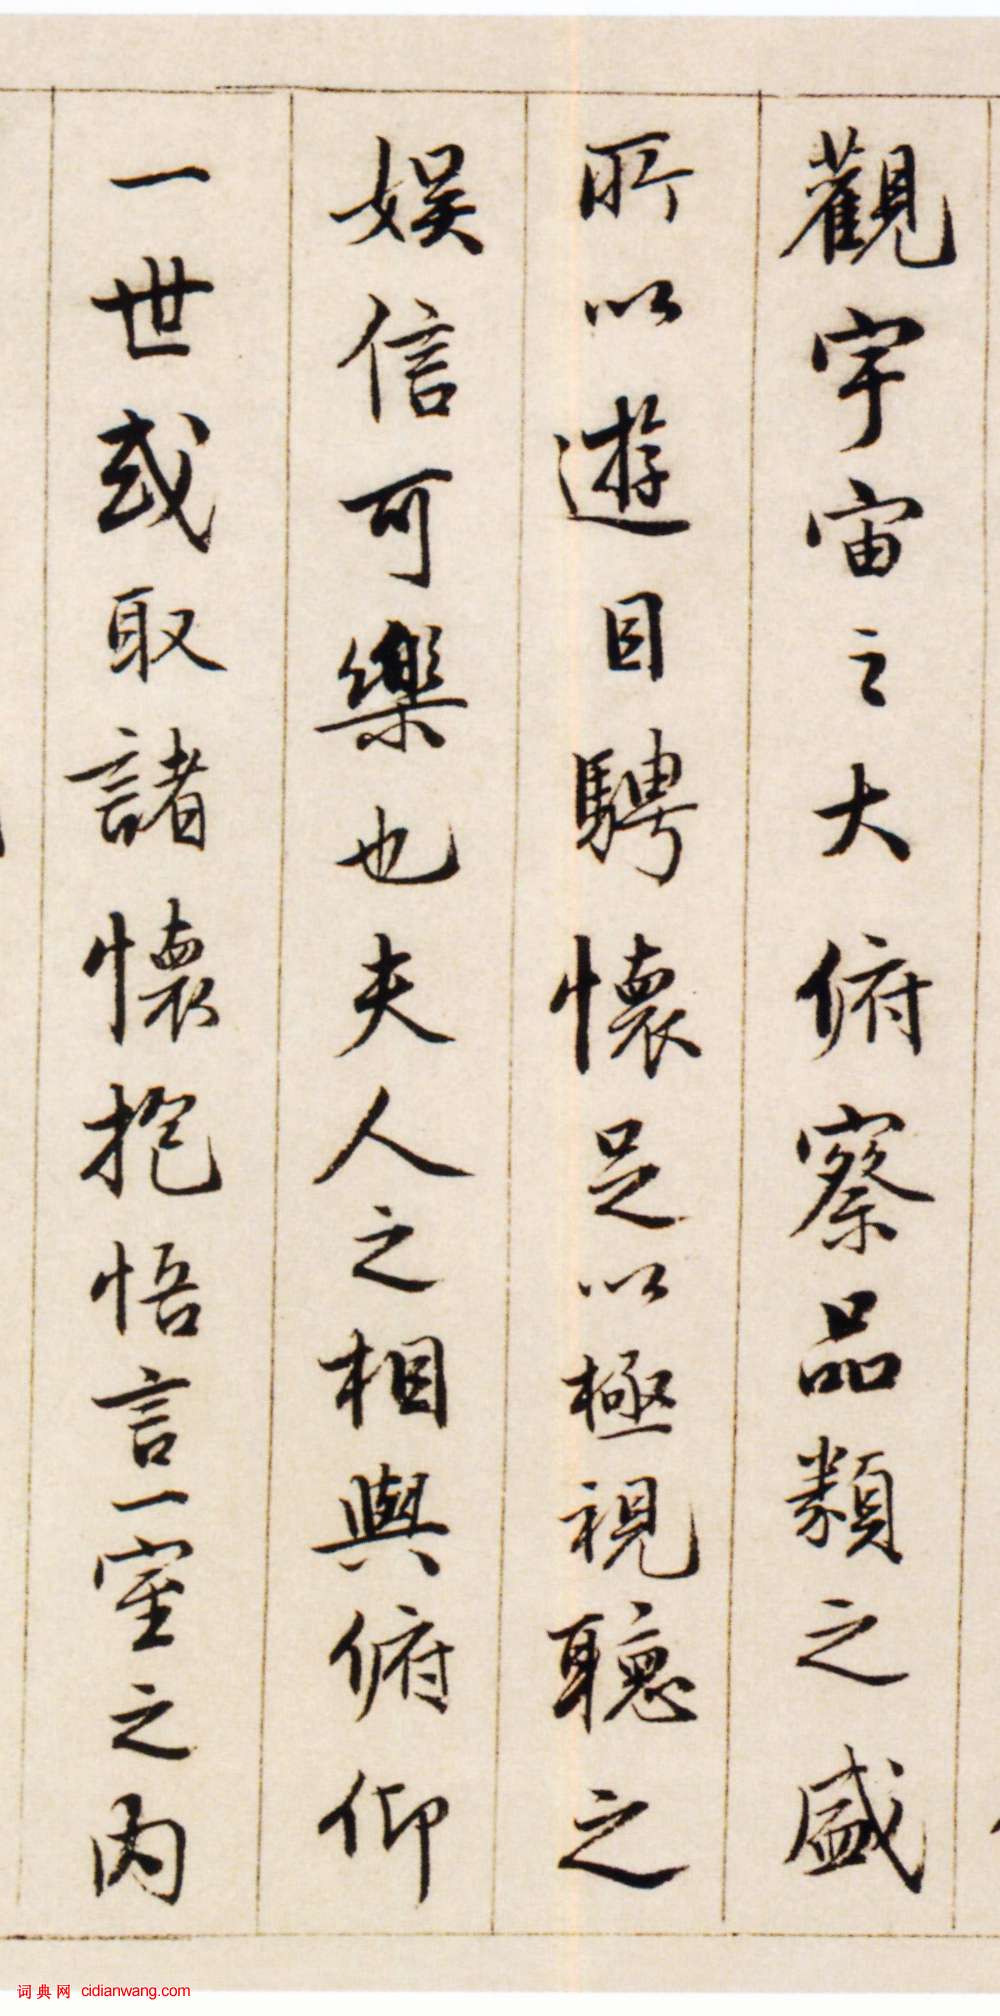 觀宇宙之大俯察品類之盛
所以遊目騁懷足以極視聽之
娛信可樂也夫人之相與俯仰
一世或取諸懷抱悟言一室之内
词典网 cidianwang.com